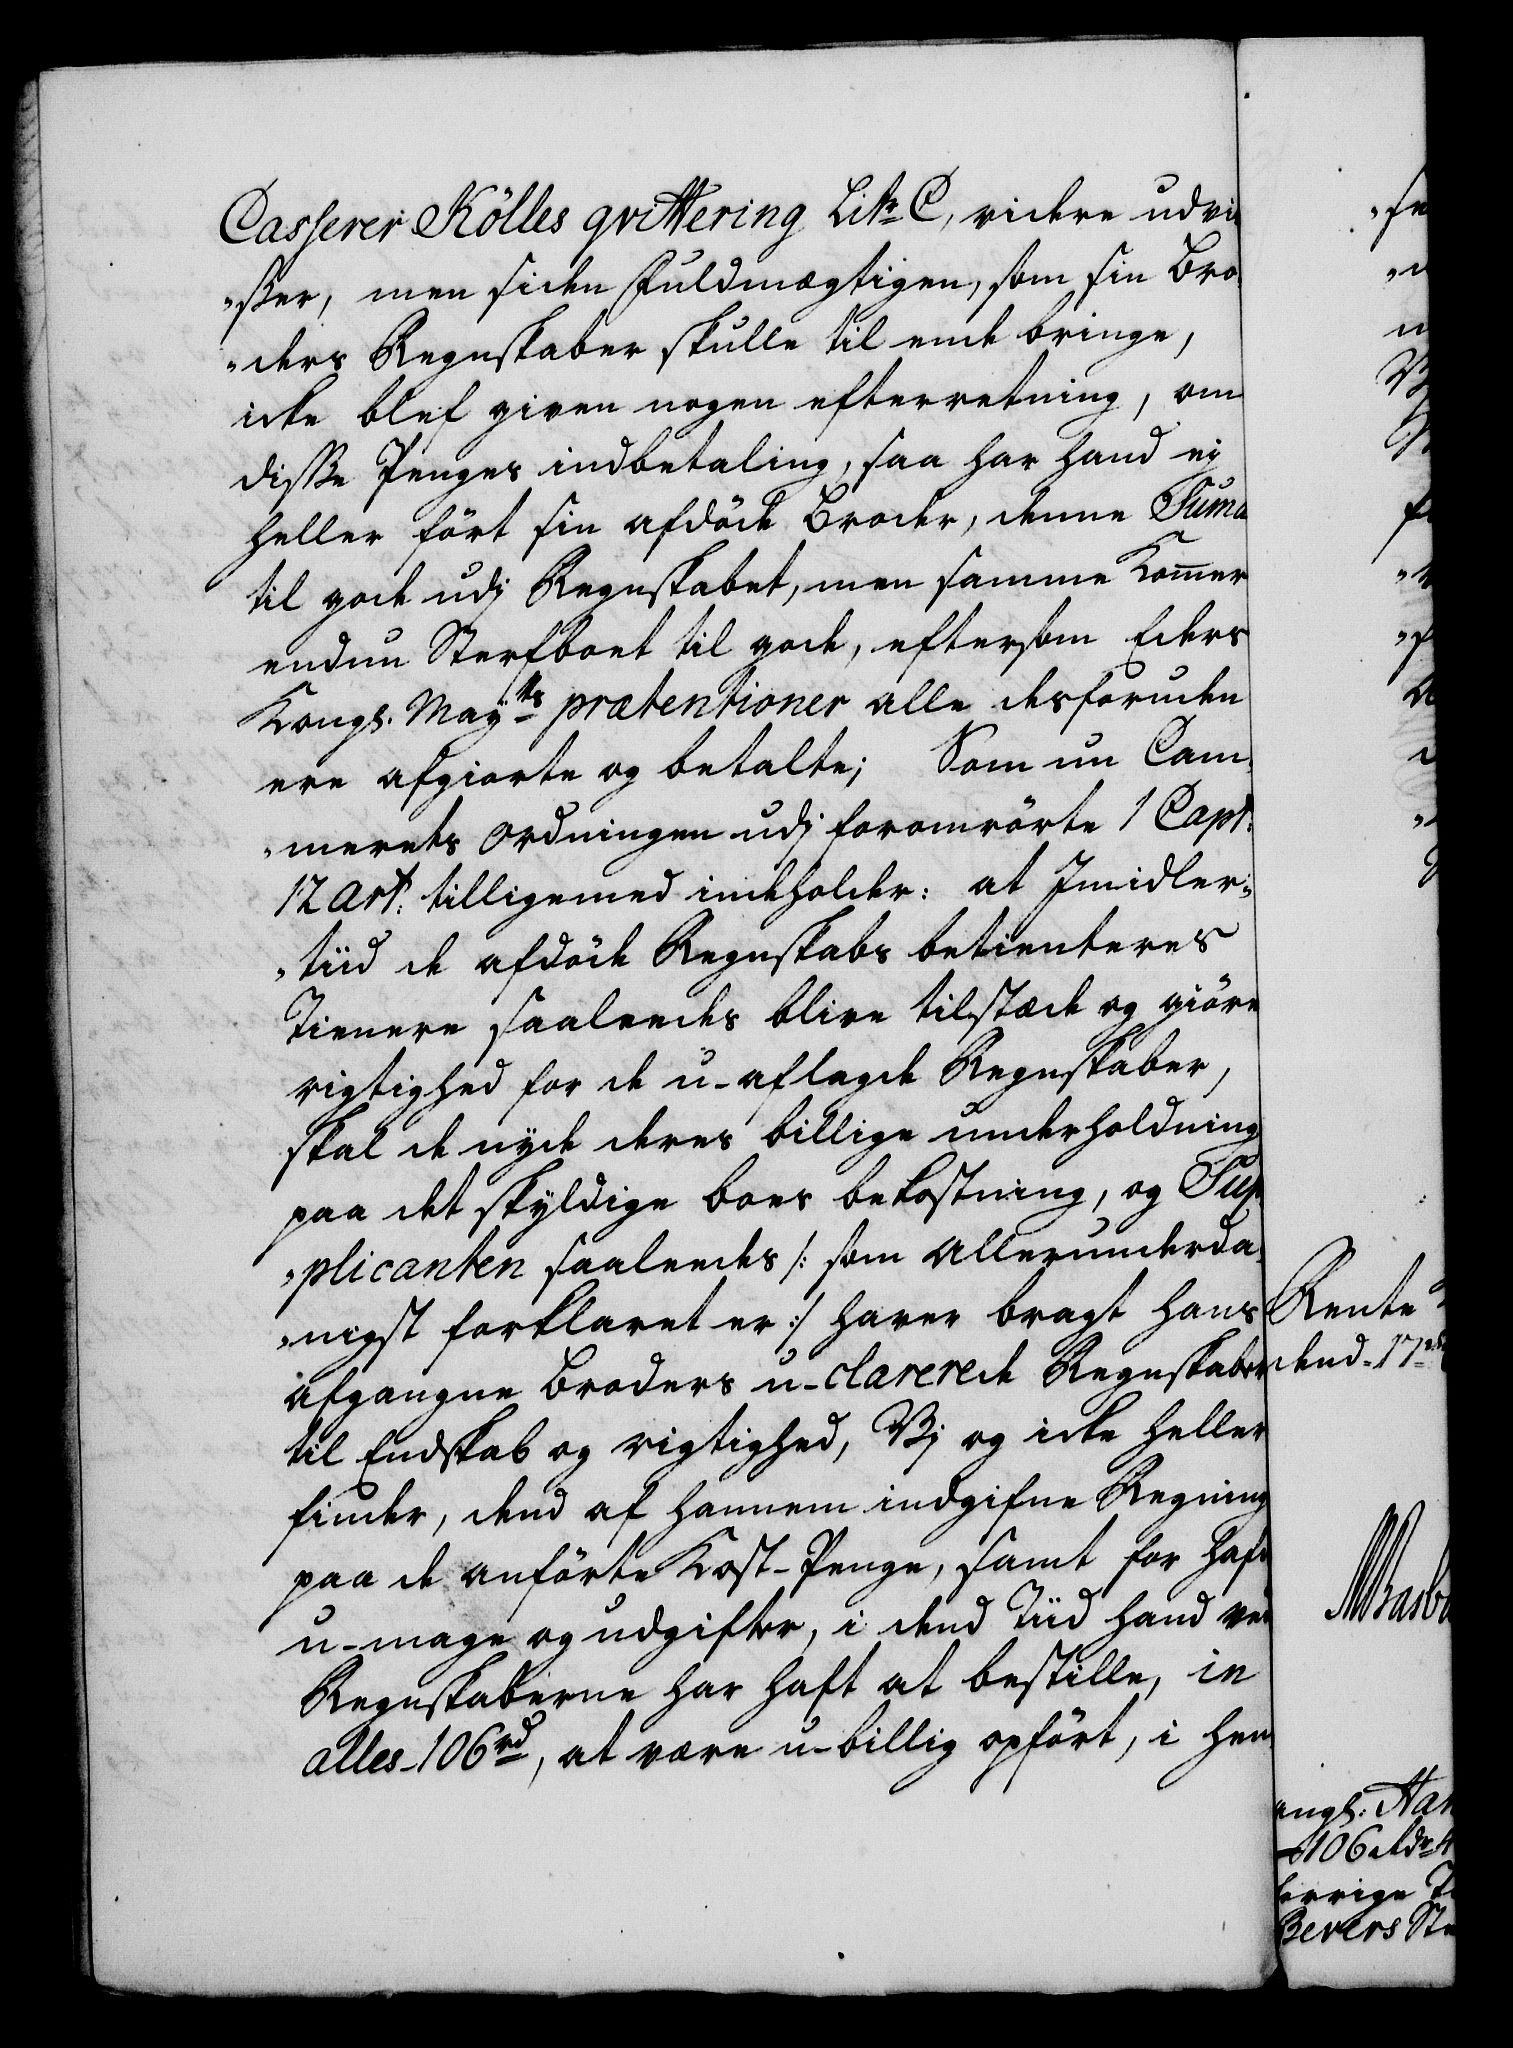 Casserer Kölles qvittering Litr C, videre udvi-
„ser, men siden Fuldmægtigen, som sin Bro-
„ders Regnskaber skulle til ende bringe,
icke blef given nogen efterretning, om
disse Penges indbetaling, saa har hand ej
heller fört sin afdöde Broder, denne Suma
til gode udj Regnskabet, men samme Komer
endnu Sterfboet til gode, eftersom Eders
Kongl. Mayts prætentioner alle desforuden
ere afgiorte og betalte; Som nu Cam-
„merets Ordningen udj foromrörte 1 Capt:
12 Art: tilligemed indeholder: at Jmidler-
„tiid de afdöde Regnskabs betienteres
Tienere saaledes blive tilstæde og giöre
rigtighed for de u-aflagde Regnskaber,
skal de nyde deres billige underholdning
paa det skyldige boes bekostning, og Sup-
„plicanten saaledes /: som allerunderda-
„nigst forklaret er :/ haver bragt hans
afgangne Broders u-clarerede Regnskaber
til Endskab og rigtighed, Vj og icke heller
finder, dend af hannem indgifne Regning
paa de anförte Kost-Penge, samt for hafd
u-mage og udgifter, i dend Tiid hand ved
Regnskaberne har haft at bestille, in
alles 106 rd, at være u-billig opfört, i hen
Rente
dend 17
106
Bevers